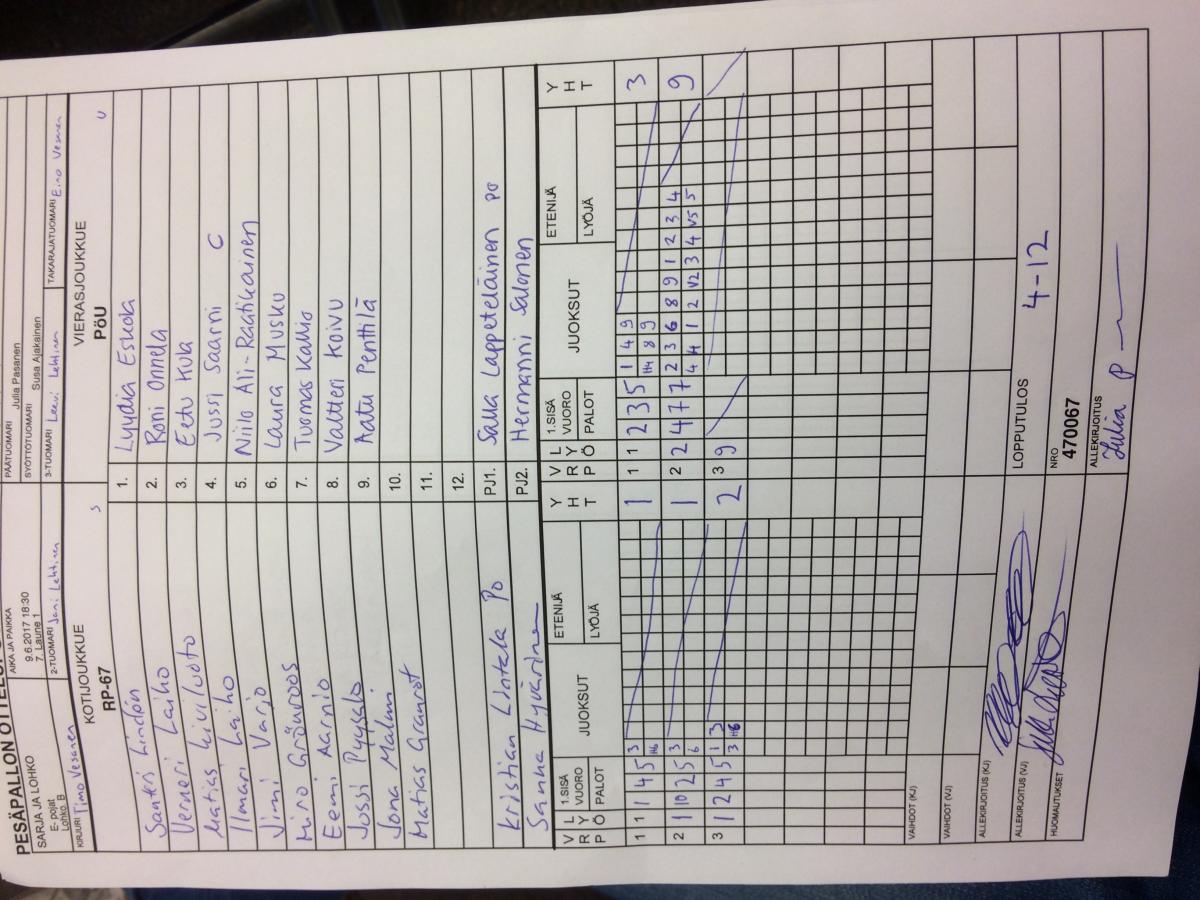 PESÄPALLON OTTELUPÖ
SARJA JA LOHKO
E- pojat
Lohko B
AIKA JA PAIKKA
9.6.2017 18:30
7. Laune 1
PÄÄTUOMARI Julia Pasanen
SYÖTTÖTUOMARI Susa Ajakainen
KIRJURI Timo Vesanen
2-TUOMARI Jani Lehtinen
3-TUOMARI Leevi Lehtinen
TAKARAJATUOMARI Eino Vesanen
KOTIJOUKKUE S
RP-67
VIERASJOUKKUE U
PöU
Santeri Lindén 1. Lyydia Eskola
Verneri Laiho 2. Roni Onnela
Matias Kiviluoto 3. Eetu Kula
Ilmari Laiho 4. Jussi Saarni C
Jimi Varjo 5. Niilo Ali-Raatikainen
Miro Grönroos 6. Laura Musku
Eemi Aarnio 7. Tuomas Kallio
Jussi Pyysalo 8. Valtteri Koivu
Jona Malmi 9. Aatu Penttilä
Matias Granrot 10.
11.
12.
Kristian Lintala Po PJ1. Salla Lappeteläinen po
Sanna Hyvärinen PJ2. Hermanni Salonen
V R P L Y Ö 1.SISÄ VUORO PALOT JUOKSUT ETENIJÄ LYÖJÄ Y H T V R P L Y Ö 1.SISÄ VUORO PALOT JUOKSUT ETENIJÄ LYÖJÄ Y H T
1 1 1 4 5 3 1 1 1 2 3 5 1 4 9 3
H6 H4 8 9
2 1 10 2 5 3 1 2 2 4 7 7 2 3 6 8 9 1 2 3 4 9
6 4 4 1 2 V2 3 4 V5 5
3 1 2 4 5 1 3 2 3 9
3 H6
VAIHDOT (KJ)
VAIHDOT (VJ)
ALLEKIRJOITUS (KJ)
LOPPUTULOS 4-12
ALLEKIRJOITUS (VJ)
HUOMAUTUKSET
NRO
470067
ALLEKIRJOITUS
Julia P